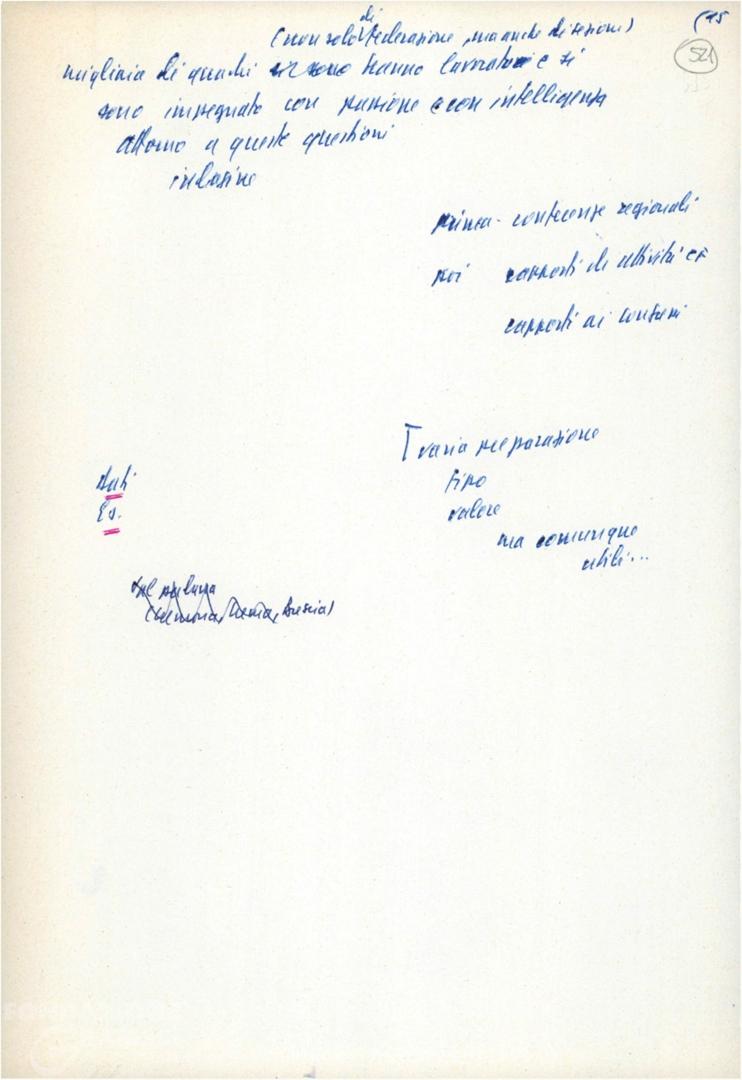 (15
521
di
(non solo Federazione, ma anche di sezioni)
migliaia di quadri si sono hanno lavorato e si
sono impegnati con passione e con intelligenza
attorno a queste questioni
indagine
prima - conferenze regionali
poi rapporti di attività e
rapporti ai congressi
Dati
Es.
varia preparazione
tipo
valore
ma comunque
utili...
(Cremona, Brescia)